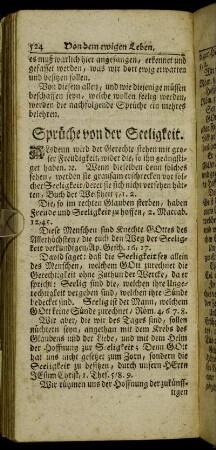 524 Von dem ewigen Leben.
es muß warlich hier angefangen, erkennet und
gefasset werden, was wir dort ewig erwarten
und besitzen sollen.
Von diesem allen, und wie diejenige müssen
beschaffen seyn, welche wollen seelig werden,
werden die nachfolgende Sprüche ein mehres
belehren.
Sprüche von der Seeligkeit.
Alsdenn wird der Gerechte stehen mit gros-
ser Freudigkeit, wider die, so ihn geängsti-
get haben, ꝛc. Wenn dieselben denn solches
sehen, werden sie grausam erschrecken vor sol-
cher Seeligkeit, deret sie sich nicht versehen hät-
ten, Buch der Weißheit 5. 1. 2.
Die, so im rechten Glauben sterben, haben
Freude und Seeligkeit zu hoffen, 2. Maccab.
12. 45.
Diese Menschen sind Knechte GOttes des
Allerhöchsten, die euch den Weg der Seelig-
keit verkündigen, Ap. Gesch. 16. 17.
David saget: daß die Seeligkeit sey allein
des Menschen, welchem GOtt zurechnet die
Gerechtigkeit ohne Zuthun der Wercke, da er
spricht: Seelig sind die, welchen ihre Unge-
rechtigkeit vergeben sind, welchen ihre Sünde
bedecket sind. Seelig ist der Mann, welchem
GOtt keine Sünde zurechnet, Röm. 4. 6. 7. 8.
Wir aber, die wir des Tages sind, sollen
nüchtern seyn, angethan mit dem Krebs des
Glaubens und der Liebe, und mit dem Helm
der Hoffnung zur Seligkeit: Denn GOtt
hat uns nicht gesetzet zum Zorn, sondern die
Seeligkeit zu besitzen, durch unsern HErrn
JEsum Christ, 1. Thes. 5. 8. 9.
Wir rühmen uns der Hoffnung der zukünff-
tigen